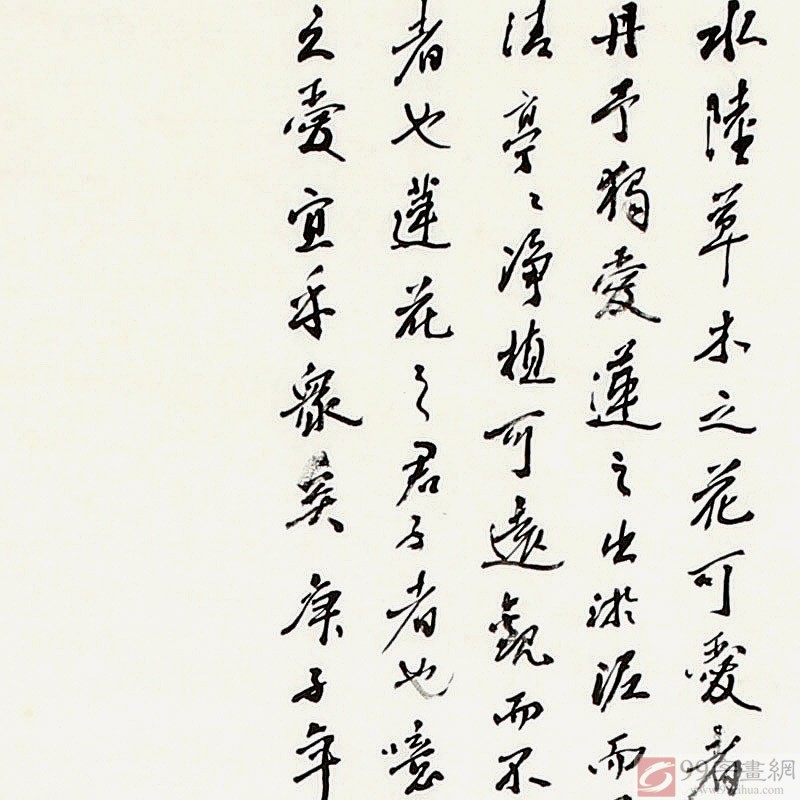 水陸草木之花可愛者
丹予獨愛蓮之出淤泥而
清亭〻淨植可遠觀而不
者也蓮花之君子者也噫
之愛宜乎衆矣庚子年
99字畫網